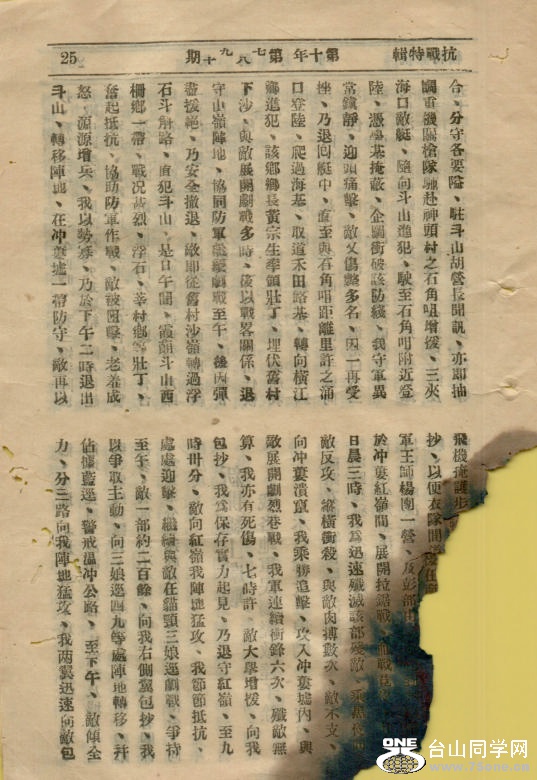 抗戰特輯
第十年第七八九十期
25
合、分守各要隘、駐斗山胡營長聞訊、亦即抽
調重機關槍隊馳赴神頭村之石角咀增援、三夾
海口敵艇、隨向斗山進犯、駛至石角咀附近登
陸、憑壆基掩蔽、企圖衝破該防綫、我守軍異
常鎮靜、迎頭痛擊、敵又傷斃多名、因一再受
挫、乃退囘艇中、直至與石角咀距離里許之涌
口登陸、爬過海基、取道禾田路基、轉向橫江
鄉進犯、該鄉鄉長黃宗生率領壯丁、埋伏舊村
下沙、與敵展開劇戰多時、後以戰畧關係、退
守山嶺陣地、協同防軍繼續劇戰至午、後因彈
盡援絕、乃安全撤退、敵即從舊村沙嶺轉過浮
石斗蔚路、直犯斗山、是日午間、霞蔚斗山西
柵鄉一帶、戰况甚烈、浮石、莘村鄉等壯丁、
奮起抵抗、協助防軍作戰、敵被囘擊、老羞成
怒、源源增兵、我以勢孤、乃於下午二時退出
斗山、轉移陣地、在冲蔞墟一帶防守、敵再以
飛機掩護步
抄、以便衣隊開
軍王師楊團一營、及彭部
於冲蔞紅嶺間、展開拉鋸戰、血戰
日晨三時、我爲迅速殲滅該部殘敵
敵反攻、縱橫衝殺、與敵肉搏數次、敵不支、
向冲蔞潰竄、我乘勝追擊、攻入冲蔞墟內、與
敵展開劇烈巷戰、我軍連續衝鋒六次、殲敵無
算、我亦有死傷、七時許、敵大舉增援、向我
包抄、我爲保存實力起見、乃退守紅嶺、至九
時卅分、敵向紅嶺我陣地猛攻、我節節抵抗、
處處迎擊、繼續與敵在貓頭三娘逕劇戰、爭持
至午、敵一部約二百餘、向我右側翼包抄、我
以爭取主動、向三娘逕四九等處陣地轉移、幷
佔據藍逕、警戒溫冲公路、至下午、敵傾全
力、分三路向我陣地猛攻、我两翼迅速向敵包
ONE
台山同学网
www.tsone.cn